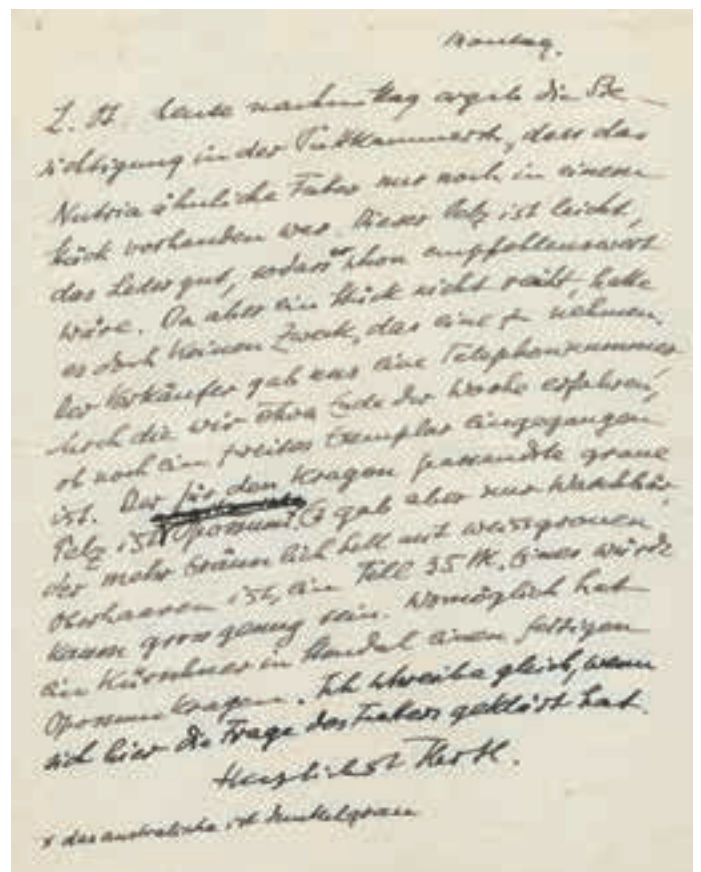 Montag.
L. H. heute nachmittag ergab die Be-
sichtigung in der Pelzkammer, dass das
Nutria ähnliche Futter nur noch in einem
Stück vorhanden war. Dieser Pelz ist leicht,
das Leder gut, sodass er schon empfehlenswert
wäre. Da aber ein Stück nicht reicht, hätte
es doch keinen Zweck, das eine zu nehmen.
Der Verkäufer gab uns eine Telephonnummer,
durch die wir Ende der Woche erfahren,
ob noch ein zweites Exemplar eingegangen
ist. Der für den Kragen passendste graue
Pelz ist Opossum. Es gab aber nur Waschbär,
der mehr bräunlich hell mit weissgrauen
Oberhaaren ist, ein Fell 35 M. Eines würde
kaum gross genug sein. Womöglich hat
ein Kürschner in Stendal einen fertigen
Opossumkragen. Ich schreibe gleich, wenn
sich hier die Frage des Futters geklärt hat.
Herzlichst
x das australische ist dunkelgrau